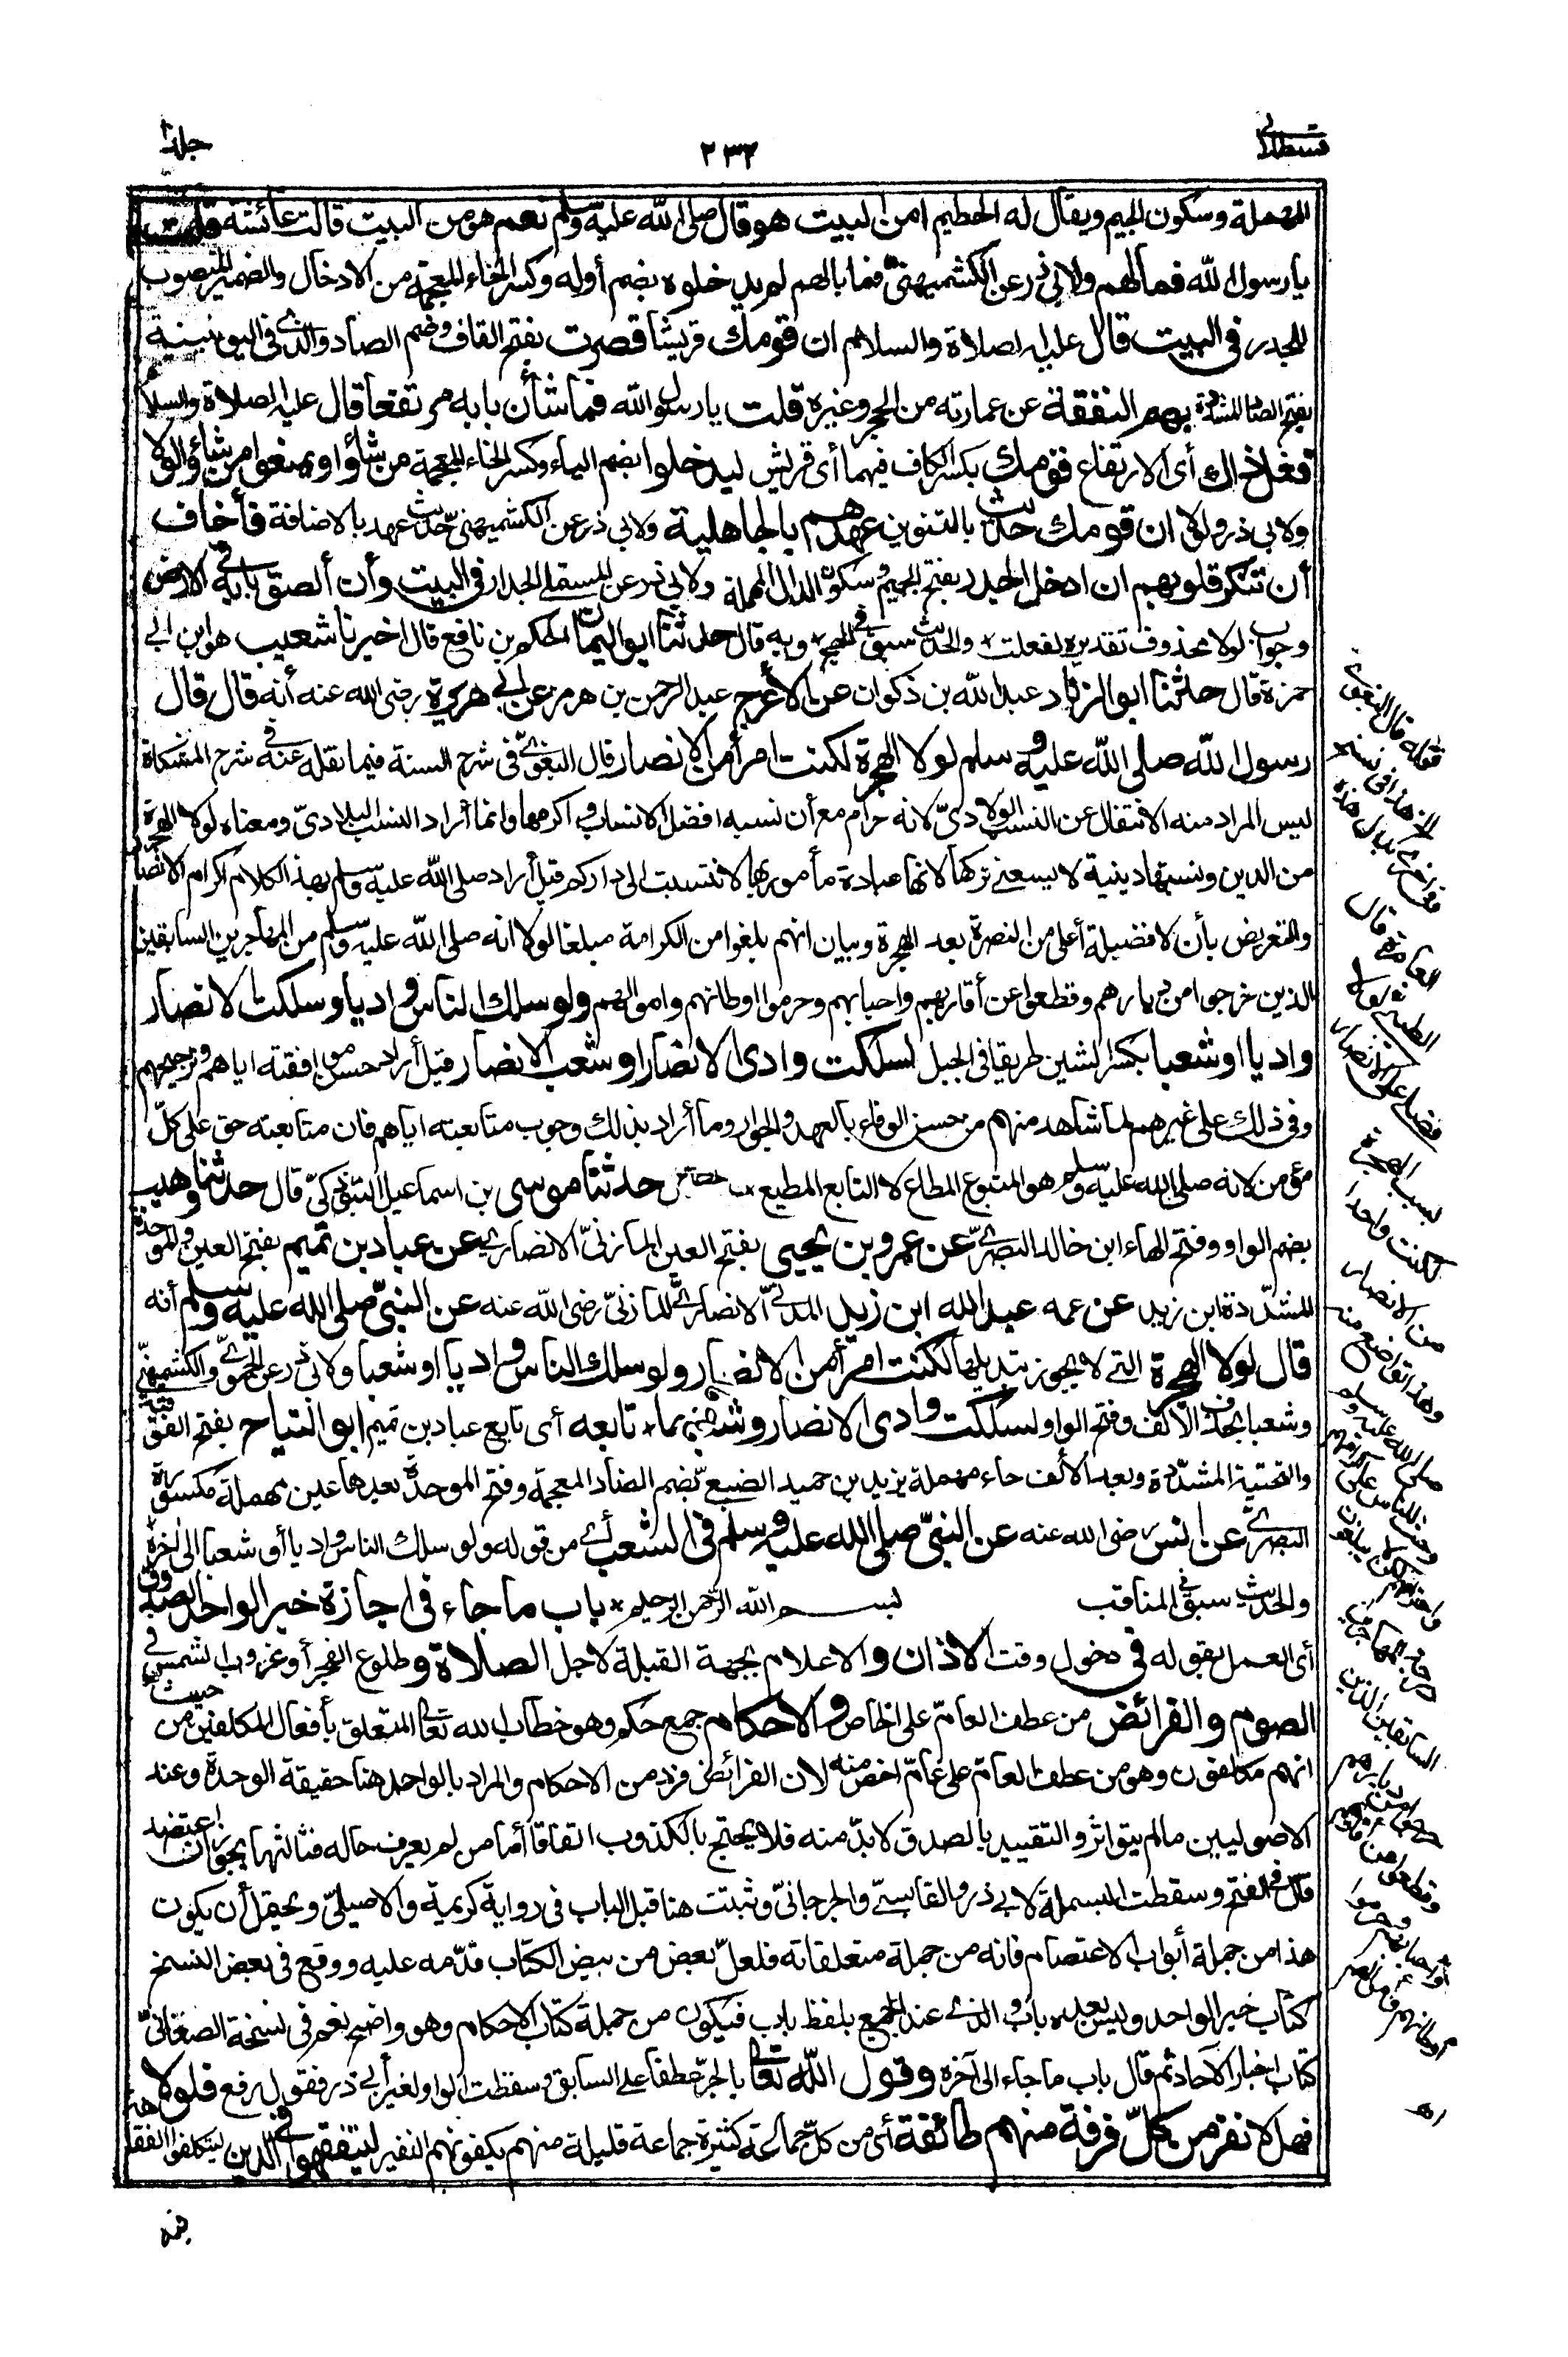 قسطلانى
٢٣٢
جلد ١٠
المهملة وسكون الجيم ويقال له الحطيم امن البيت هو قال صلى الله عليه وسلم نعم هو من البيت قالت عائشة قلت
يا رسول الله فمالهم ولابي ذر عن الكشميهنى فما بالهم لم يدخلوه بضم أوله وكسر الخاء المعجمة من الادخال والضمير المنصوب
للجدر فى البيت قال عليه الصلاة والسلام ان قومك قريشا قصرت بفتح القاف وضم الصاد والذى فى اليونينية
بفتح الصاد المشددة بهم النفقة عن عمارته من الحجر وغيره قلت يا رسول الله فما شأن بابه مرتفعا قال عليه الصلاة والسلام
فعل ذاك أى الارتفاع قومك بكسر الكاف فيهما أى قريش ليدخلوا بضم الياء وكسر الخاء المعجمة من شاؤا ويمنعوا من شاؤا ولولا
ولابي ذر ولولا ان قومك حديث بالتنوين عهدهم بالجاهلية ولابي ذر عن الكشميهنى حديث عهد بالاضافة فأخاف
أن تنكر قلوبهم ان ادخل الجدر بفتح الجيم وسكون الدال المهملة ولابي ذر عن المستملى الجدار فى البيت وأن ألصق بابه فى الارض
وجواب لولا محذوف تقديره لفعلت * والحديث سبق فى الحج * وبه قال حدثنا ابو اليمان الحكم بن نافع قال اخبرنا شعيب هو ابن ابي
حمزة قال حدثنا ابو الزناد عبد الله بن ذكوان عن الأعرج عبد الرحمن بن هرمز عن ابي هريرة رضى الله عنه أنه قال قال
رسول الله صلى الله عليه وسلم لولا الهجرة لكنت امرأ من الانصار قال البغوىّ فى شرح السنة فيما نقله عنه فى شرح المشكاة
ليس المراد منه الانتقال عن النسب الولادىّ لانه حرام مع أن نسبه افضل الانساب واكرمها وانما أراد النسب البلادىّ ومعناه لولا الهجرة
من الدين ونسبتها دينية لا يسعنى تركها لانها عبادة مأمور بها لانتسبت الى داركم قيل أراد صلى الله عليه وسلم بهذا الكلام اكرام الانصار
والتعريض بأن لا فضيلة أعلى من النصرة بعد الهجرة وبيان انهم بلغوا من الكرامة مبلغا لولا انه صلى الله عليه وسلم من المهاجرين السابقين
الذين خرجوا من ديارهم وقطعوا عن أقاربهم واحبابهم وحرموا اوطانهم واموالهم ولو سلك الناس واديا وسلكت الانصار
واديا او شعبا بكسر الشين طريقا فى الجبل لسلكت وادى الانصار او شعب الانصار قيل أراد حسن موافقته اياهم وترجيحهم
وفى ذلك على غيرهم لما شاهد منهم من حسن الوفاء بالعهد والجوار وما أراد بذلك وجوب متابعته اياهم فان متابعته حق على كلّ
مؤمن لانه صلى الله عليه وسلم هو المتبوع المطاع لا التابع المطيع حدثنا موسى بن اسماعيل التبوذكىّ قال حدثنا وهيب
بضم الواو وفتح الهاء ابن خالد البصرىّ عن عمرو بن يحيى بفتح العين المازنىّ الانصارى عن عباد بن تميم بفتح العين والموحدة
المشدّدة ابن زيد عن عمه عبد الله ابن زيد المدنىّ الانصارىّ المازنىّ رضى الله عنه عن النبىّ صلى الله عليه وسلم أنه
قال لولا الهجرة التى لا يجوز تبديلها لكنت امرأ من الانصار ولو سلك الناس واديا او شعبا ولابى ذر عن الحموىّ والكشميهنىّ
وشعبا بحذف الألف وفتح الواو لسلكت وادى الانصار وشعبها * تابعه أى تابع عباد بن تميم ابو التياح بفتح الفوقية
والتحتية المشدّدة وبعد الألف حاء مهملة يزيد بن حميد الضبعىّ بضم الضاد المعجمة وفتح الموحدة بعدها عين مهملة مكسورة
البصرىّ عن انس رضى الله عنه عن النبىّ صلى الله عليه وسلم فى الشعب أى من قوله ولو سلك الناس واديا أو شعبا الى آخره
والحديث سبق فى المناقب بسم الله الرحمن الرحيم * باب ما جاء فى اجازة خبر الواحد الصدوق
أى العمل بقوله فى دخول وقت الاذان والاعلام بجهة القبلة لاجل الصلاة وطلوع الفجر أو غروب الشمس فى
الصوم والفرائض من عطف العامّ على الخاص والاحكام جمع حكم وهو خطاب الله تعالى المتعلق بأفعال المكلفين من حيث
انهم مكلفون وهو من عطف العامّ على عامّ اخص منه لان الفرائض فرد من الاحكام والمراد بالواحد هنا حقيقة الوحدة وعند
الاصوليين ما لم يتواتر والتقييد بالصدق لابدّ منه فلا يحتج بالكذوب اتفاقا أما من لم يعرف حاله فثالثها يجوز ان اعتضد
قال فى الفتح وسقطت البسملة لابى ذر والقابسىّ والجرجانىّ وثبتت هنا قبل الباب فى رواية كريمة والاصيلىّ ويحتمل أن يكون
هذا من جملة أبواب الاعتصام فانه من جملة متعلقاته فلعلّ بعض من بيض الكتاب قدّمه عليه ووقع فى بعض النسخ
كتاب خبر الواحد وليس بعده باب والذى عند الجميع بلفظ باب فيكون من جملة كتاب الاحكام وهو واضح نعم فى نسخة الصغانىّ
كتاب اخبار الآحاد ثم قال باب ما جاء الى آخره وقول الله تعالى بالجرّ عطفا على السابق وسقطت الواو لغير أبى ذر فقول رفع فلولا
فهلا نفر من كلّ فرقة منهم طائفة أى من كلّ جماعة كثيرة جماعة قليلة منهم يكفونهم النفير ليتفقهوا فى الدين ليتكلفوا الفقه
فيه
قوله قال البغوى
الخ هذا فى نسخة
وفى اخرى بدل هذه
العبارة قال
الطيبى
فضل على الانصار
بسبب الهجرة
لكنت واحدا
من الانصار
وهذا تواضع منه
صلى الله عليه وسلم
وحث للناس على اكرامهم
السابقين الذين
خرجوا من ديارهم
وقطعوا عن اقاربهم
وحرموا
اوطانهم واموالهم
اهـ